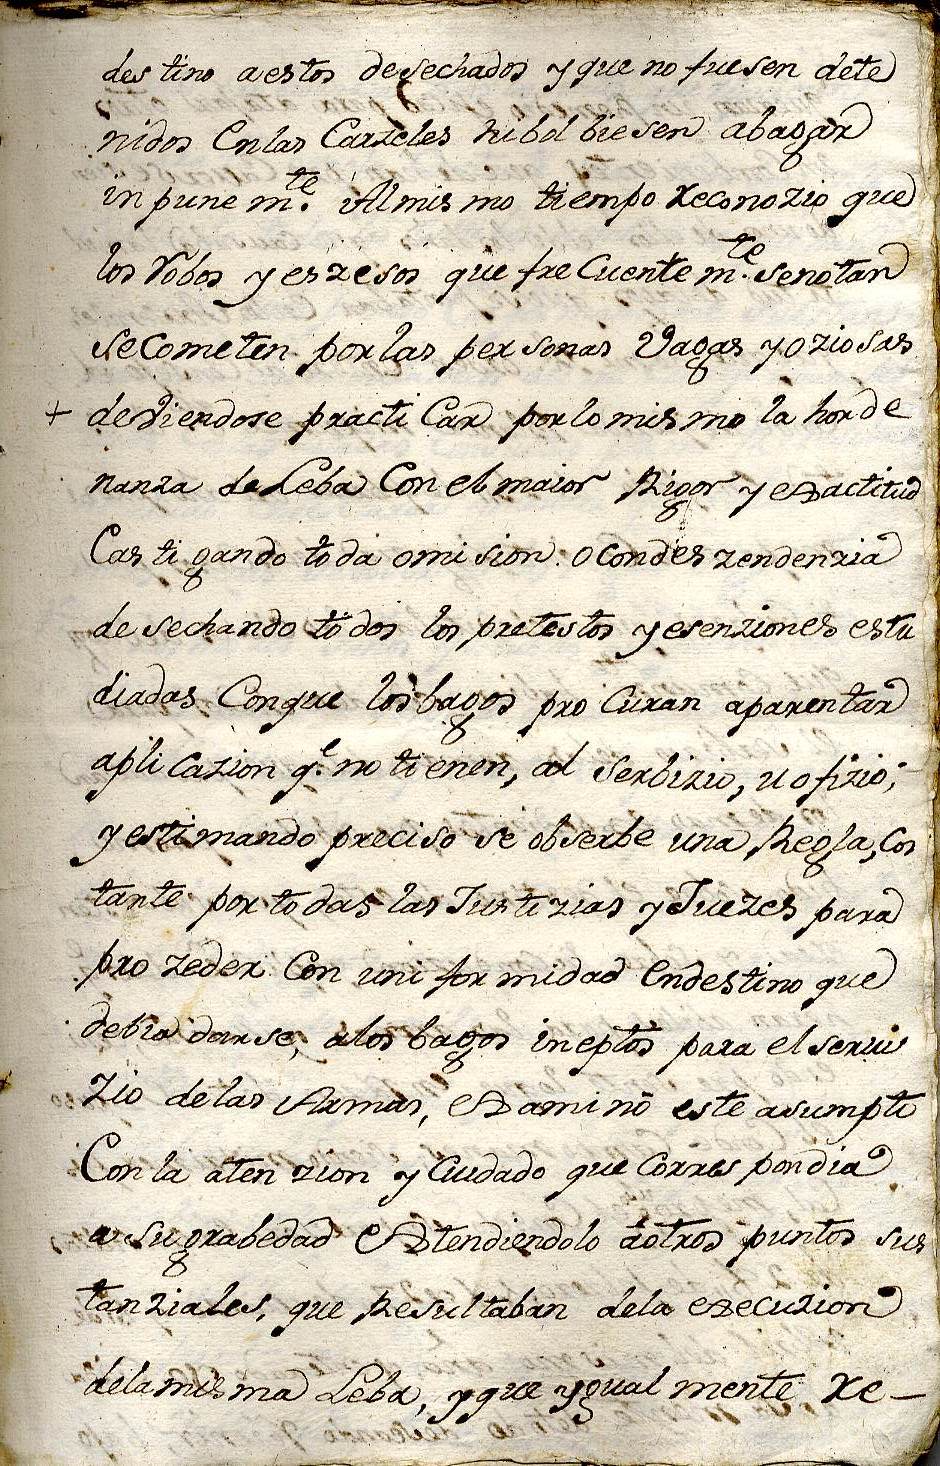 destino aestos desechados y que no fuesen dete
nidos en las Carzeles ni bolbiesen abagar
inpunem.te Almismo tiempo reconozio que
los Robos y eszesos que freCuentem.te senotan
seCometen por las personas Vagas y oziosas
+ deviendose practiCar por lo mismo la horde
nanza de Leba Con el maior Rigor y exactitud
Castigando toda omision o condeszendenzia
desechando todos los pretestos y esenziones estu
diadas Conque los bagos proCuran aparentar
aplicazion q.e no tienen, al serbizio, u ofizio;
y estimando preciso se obserbe una Regla, Cos
tante por todas las Justizias y Juezes para
prozeder Con uniformidad Endestino que
debia darse, alos bagos ineptos para el servi
zio delas Armas, Examinó este asumpto
Con la atenzion y Cuidado que Correspondia
a su grabedad Extendiendolo áotros puntos sus
tanziales, que Resultaban dela execuzion
delamisma Leba, y que ygualmente re-